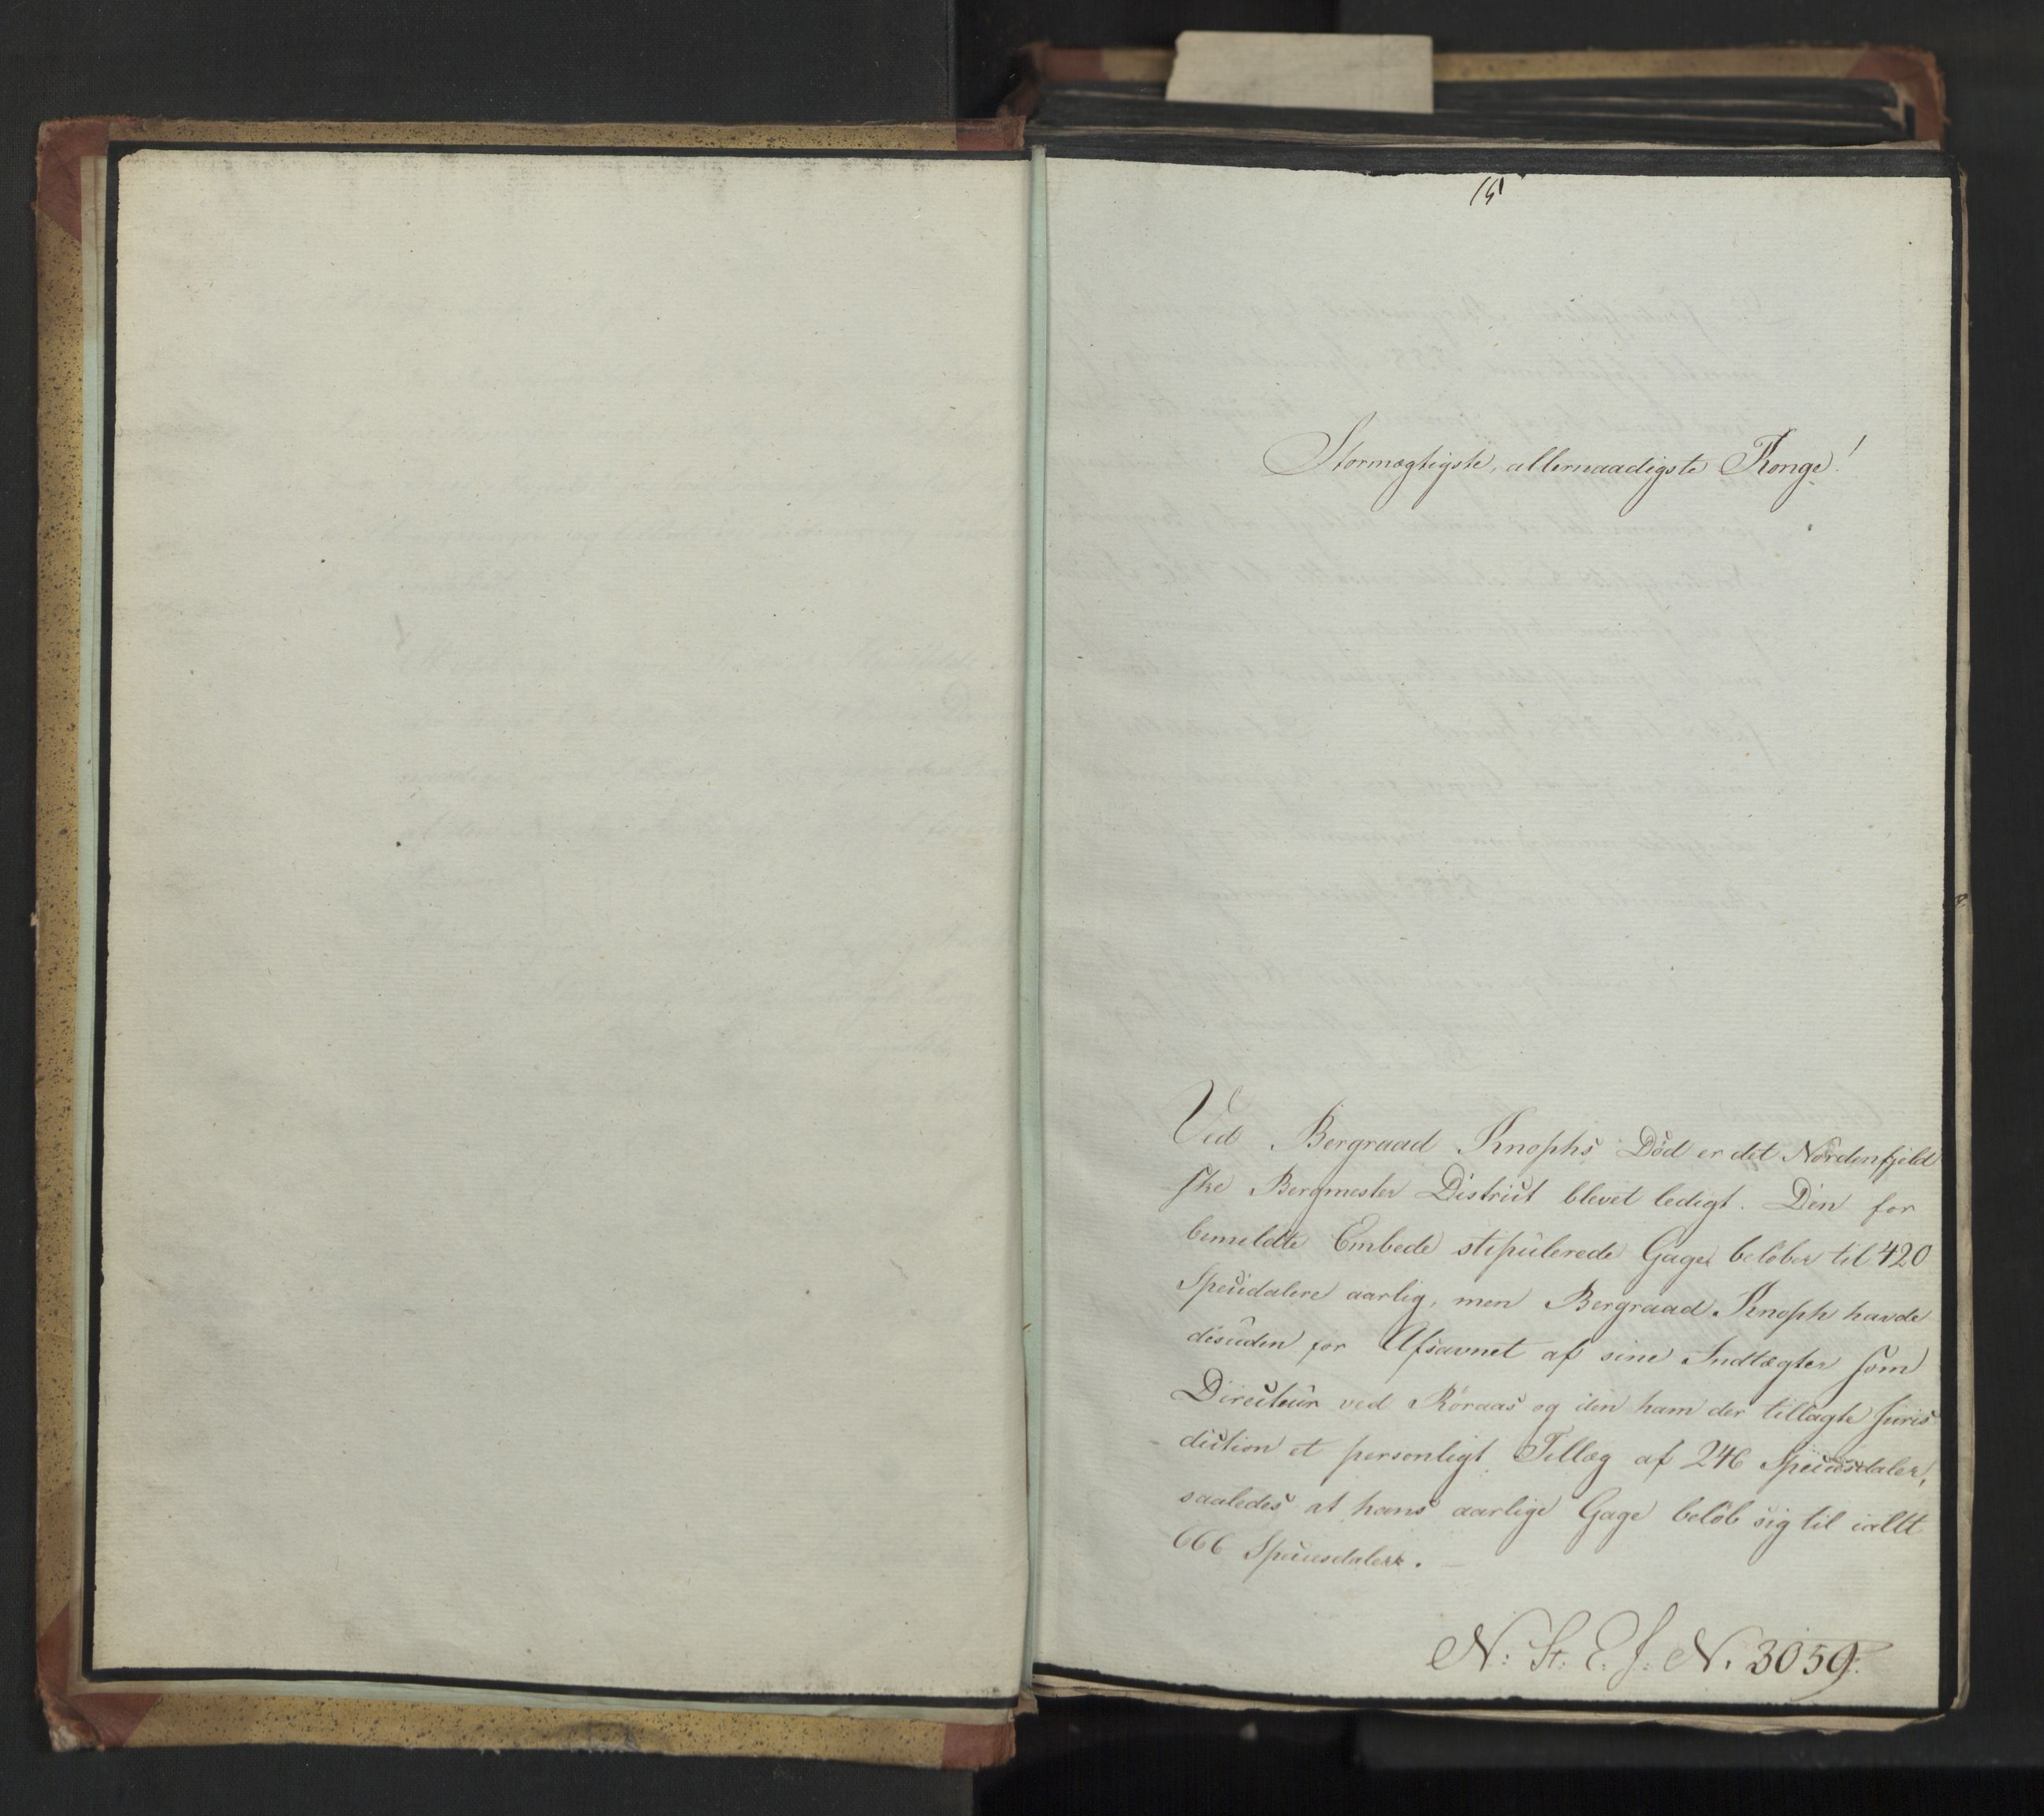 15
Stormægtigste, allernaadigste Konge!
Ved Bergraad Knophs Död er det Nordenfjeld
ske Bergmester District blevet ledigt. Den for
bemeldte Embede stipulerede Gage beløber til 420
Speciedalere aarlig, men Bergraad Knoph havde
desuden for Afsavnet af sine Indtægter som
Directeur ved Röraas og den ham der tillagte Juris
diction et personligt Tillæg af 246 Speciesdaler,
saaledes at hans aarlige Gage belöb sig til ialt
666 Speciesdaler. —
N: St: E. J: N. 3059.